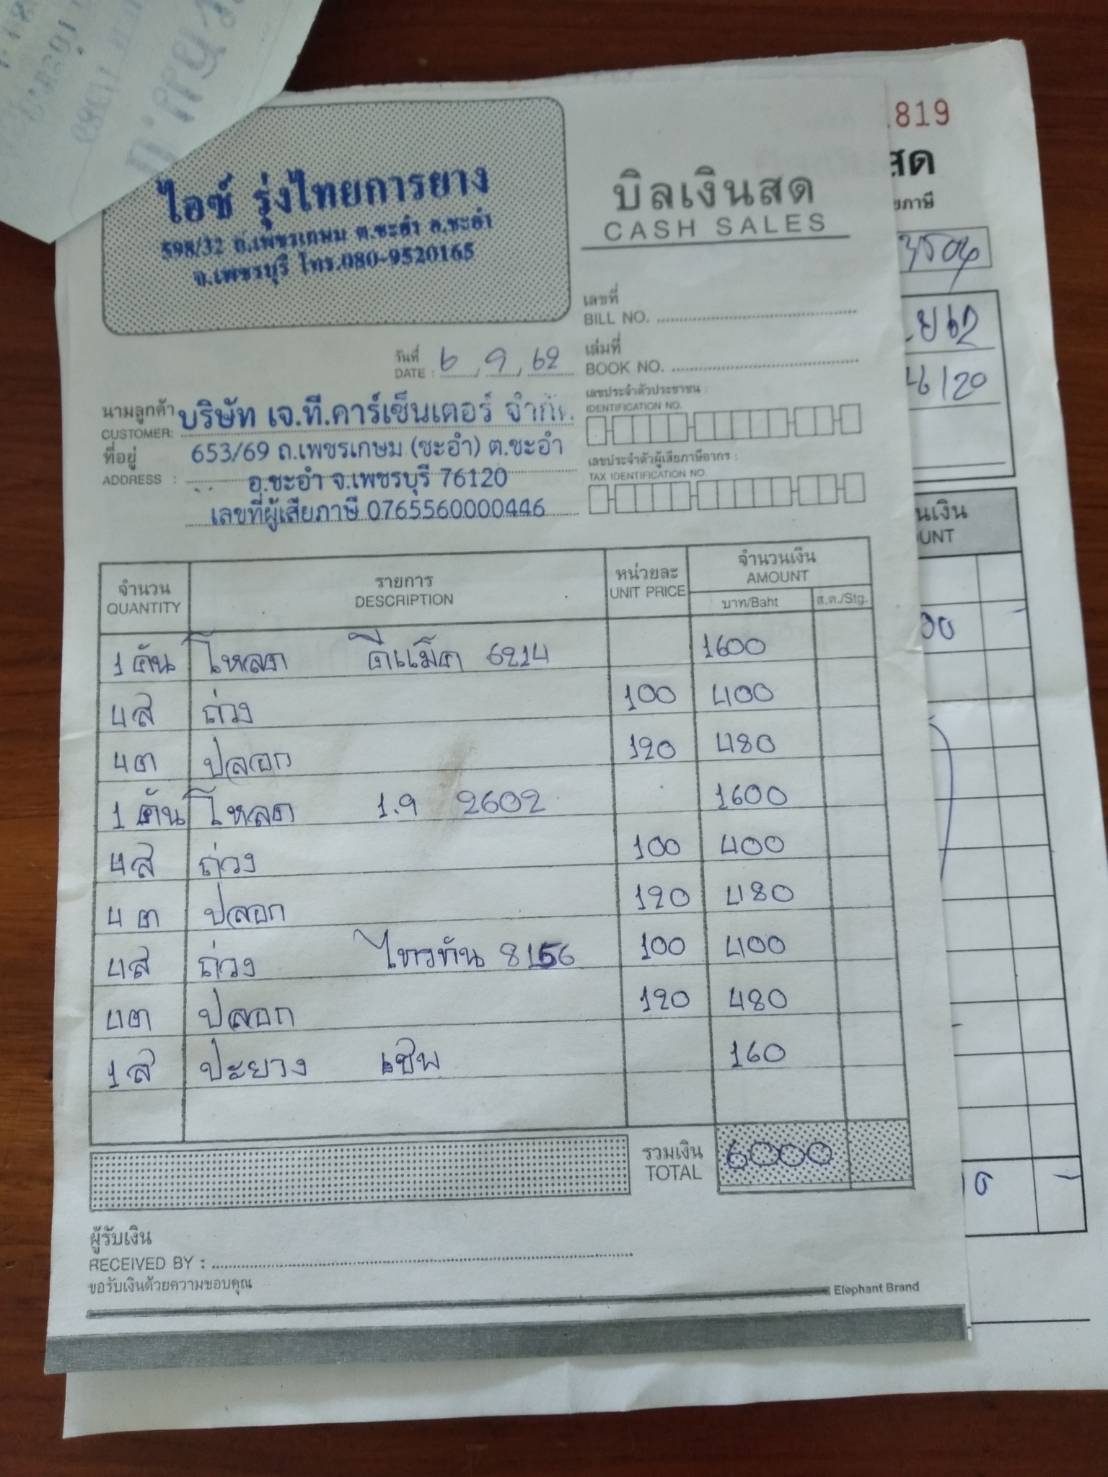 ไอซ์ รุ่งไทยการยาง
598/32 ถ.เพชรเกษม ต.ชะอำ อ.ชะอำ
จ.เพชรบุรี โทร.080-9520165
บิลเงินสด
CASH SALES
เลขที่
BILL NO.
เล่มที่
BOOK NO.
วันที่
DATE : 6, 9, 62
นามลูกค้า บริษัท เจ.ที.คาร์เซ็นเตอร์ จำกัด.
CUSTOMER:
ที่อยู่ 653/69 ถ.เพชรเกษม (ชะอำ) ต.ชะอำ
ADDRESS : อ.ชะอำ จ.เพชรบุรี 76120
เลขที่ผู้เสียภาษี 0765560000446
เลขประจำตัวประชาชน :
IDENTIFICATION NO.
เลขประจำตัวผู้เสียภาษีอากร :
TAX IDENTIFICATION NO.
จำนวน รายการ หน่วยละ จำนวนเงิน
QUANTITY DESCRIPTION UNIT PRICE AMOUNT
บาท/Baht ส.ต./Stg.
1 คัน โหลด ดีแม็ค 6214 1600
4 ส ถ่วง 100 400
4 ต ปลอก 120 480
1 คัน โหลด 1.9 2602 1600
4 ส ถ่วง 100 400
4 ต ปลอก 120 480
4 ส ถ่วง ไททัน 8156 100 400
4 ต ปลอก 120 480
1 ส ปะยาง เชฟ 160
รวมเงิน 6000
TOTAL
ผู้รับเงิน
RECEIVED BY :
ขอรับเงินด้วยความขอบคุณ
Elephant Brand
819
สด
3504
62
20
นเงิน
UNT
00